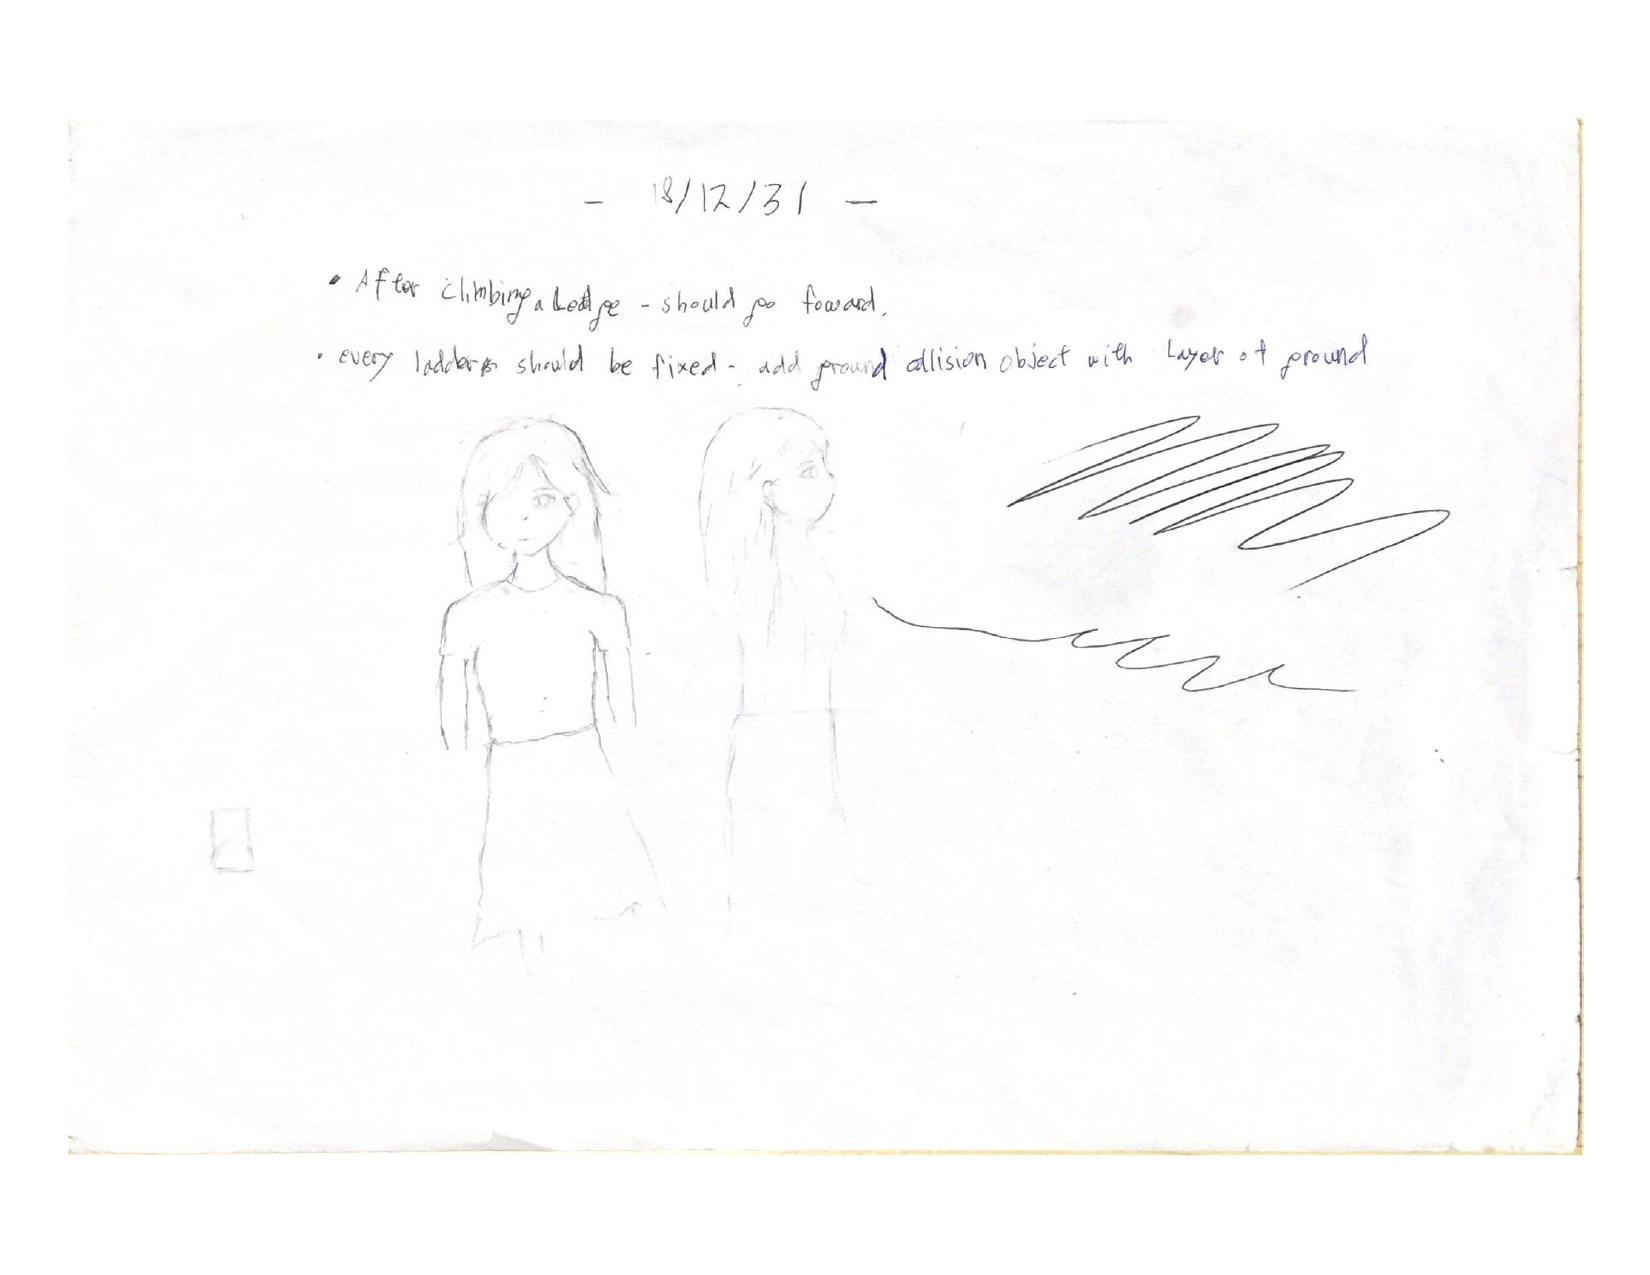 - 18/12/31 -
• After climbing a Ledge - should go foward.
• every ladders should be fixed - add ground collision object with Layer of ground